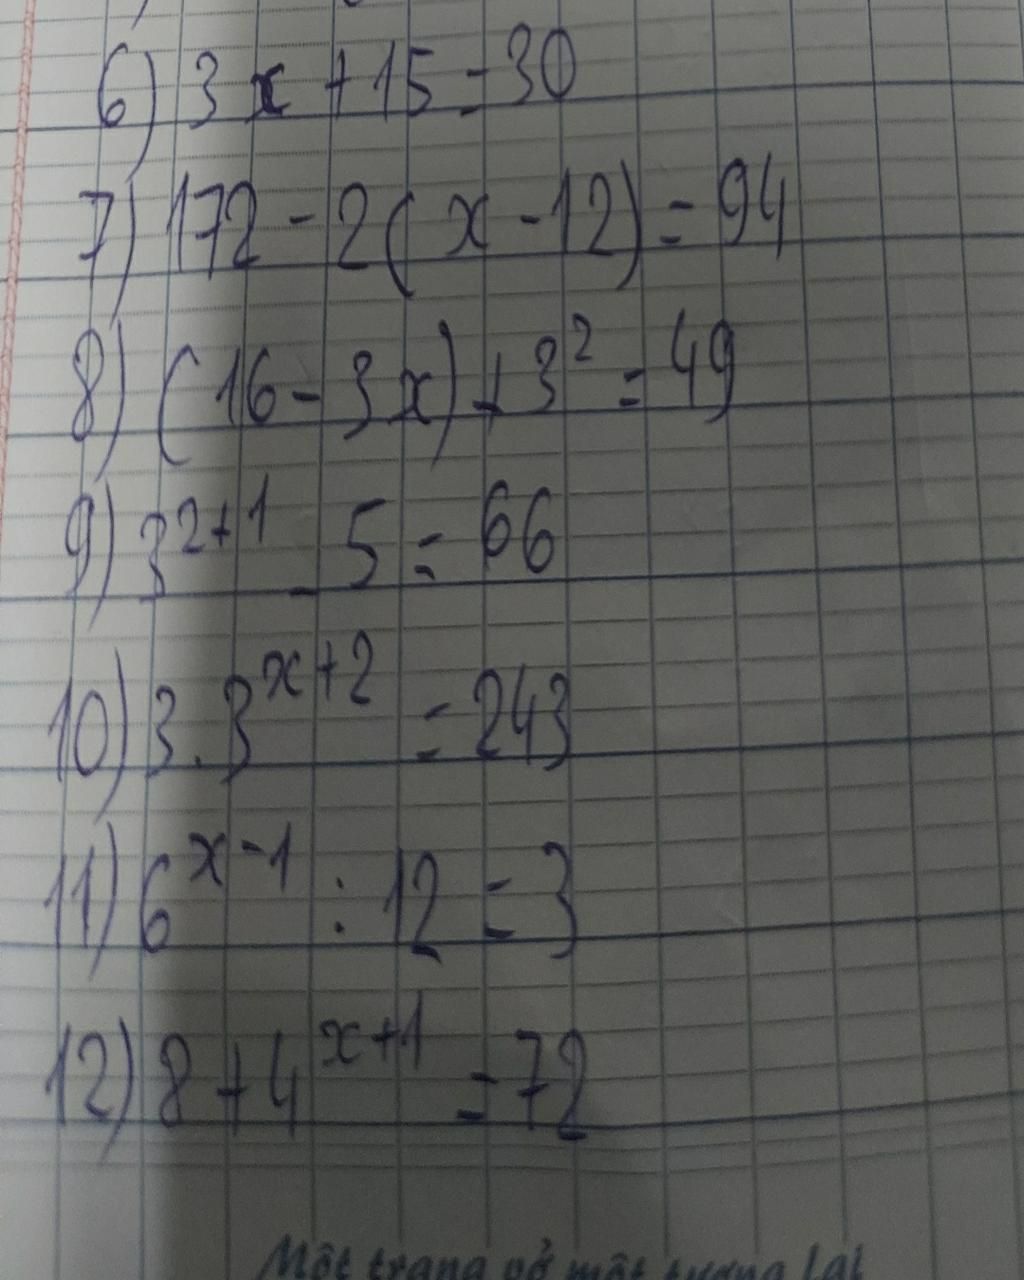 6) 3x + 15 = 30
7) 172 - 2(x - 12) = 94
8) (16 - 3x) + 3² = 49
9) 3²⁺¹ - 5 = 66
10) 3 . 3ˣ⁺² = 243
11) 6ˣ⁻¹ : 12 = 3
12) 8 + 4ˣ⁺¹ = 72
Một trang vở một tương lai